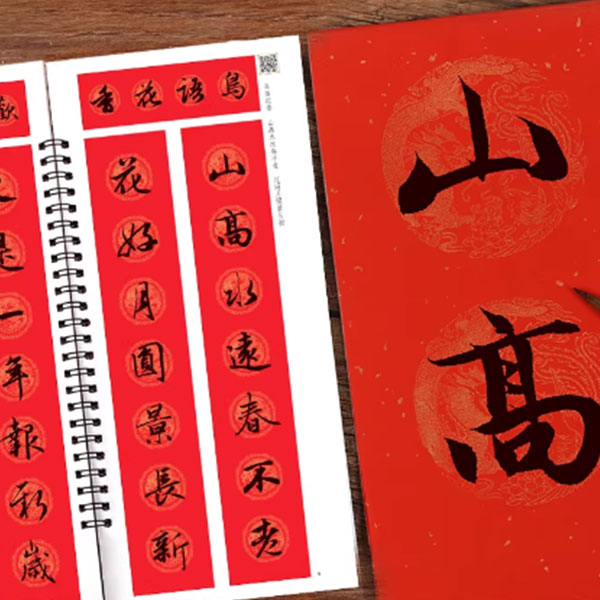 鳥語花香
山高水遠春不老
花好月圓景長新
歡
是一年報新歲
山高